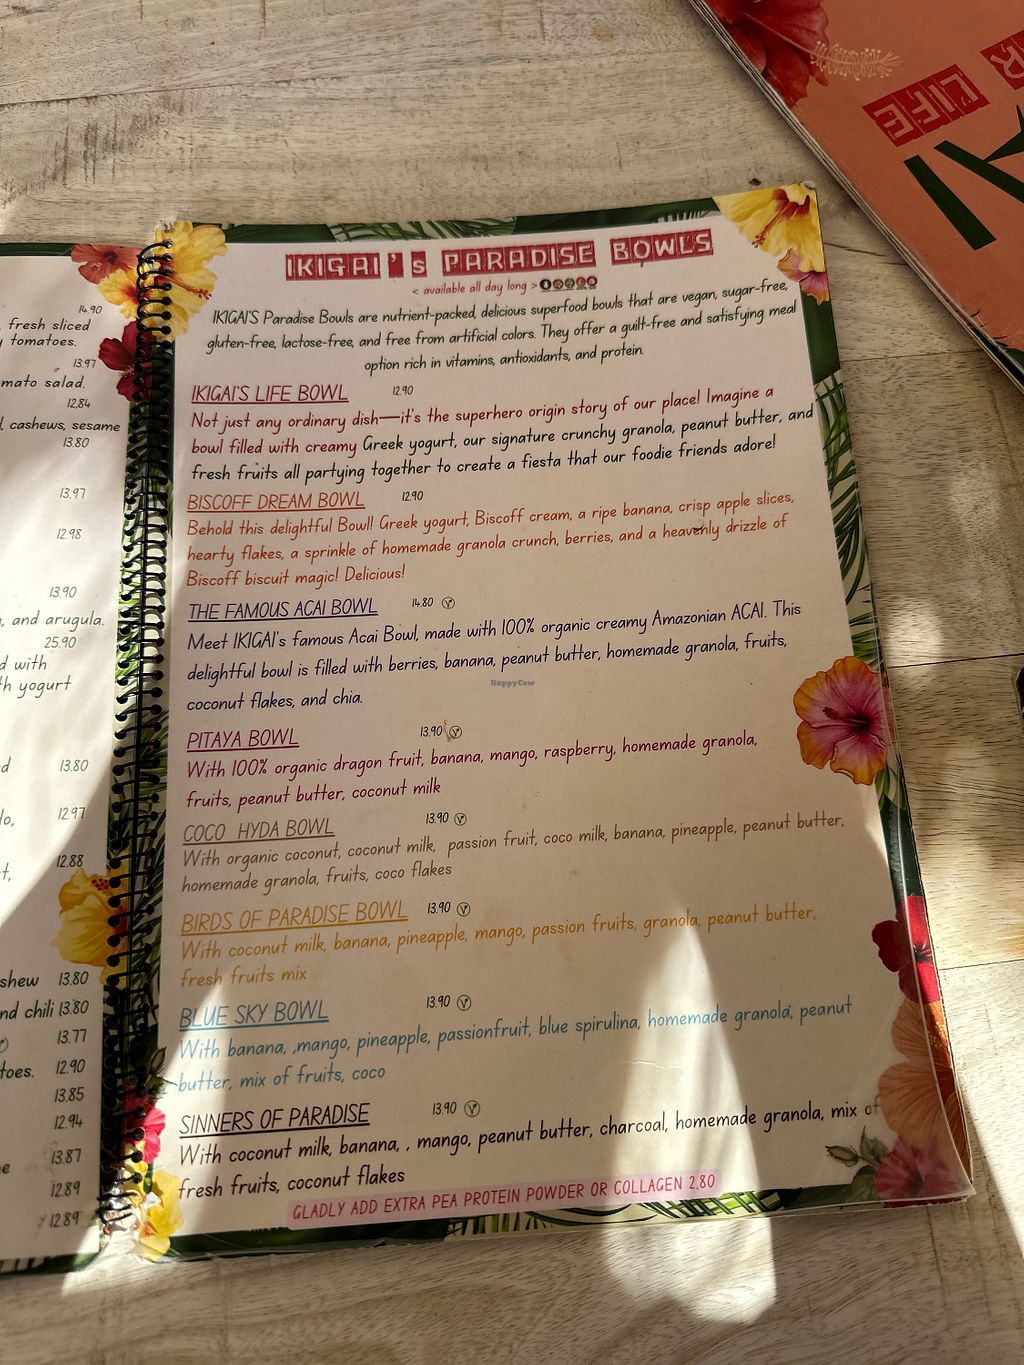 14.90
fresh sliced
tomatoes.
13.97
mato salad.
12.84
cashews, sesame
13.80
13.97
12.98
13.90
, and arugula.
25.90
d with
th yogurt
13.80
12.97
12.88
shew 13.80
nd chili 13.80
13.77
toes. 12.90
13.85
12.94
13.87
12.89
12.89
IKIGAI's PARADISE BOWLS
< available all day long >
IKIGAI'S Paradise Bowls are nutrient-packed, delicious superfood bowls that are vegan, sugar-free,
gluten-free, lactose-free, and free from artificial colors. They offer a guilt-free and satisfying meal
option rich in vitamins, antioxidants, and protein.
IKIGAI'S LIFE BOWL 12.90
Not just any ordinary dish—it's the superhero origin story of our place! Imagine a
bowl filled with creamy Greek yogurt, our signature crunchy granola, peanut butter, and
fresh fruits all partying together to create a fiesta that our foodie friends adore!
BISCOFF DREAM BOWL 12.90
Behold this delightful Bowl! Greek yogurt, Biscoff cream, a ripe banana, crisp apple slices,
hearty flakes, a sprinkle of homemade granola crunch, berries, and a heavenly drizzle of
Biscoff biscuit magic! Delicious!
THE FAMOUS ACAI BOWL 14.80 V
Meet IKIGAI's famous Acai Bowl, made with 100% organic creamy Amazonian ACAI. This
delightful bowl is filled with berries, banana, peanut butter, homemade granola, fruits,
coconut flakes, and chia.
HappyCow
PITAYA BOWL 13.90 V
With 100% organic dragon fruit, banana, mango, raspberry, homemade granola,
fruits, peanut butter, coconut milk
COCO HYDA BOWL 13.90 V
With organic coconut, coconut milk, passion fruit, coco milk, banana, pineapple, peanut butter,
homemade granola, fruits, coco flakes
BIRDS OF PARADISE BOWL 13.90 V
With coconut milk, banana, pineapple, mango, passion fruits, granola, peanut butter,
fresh fruits mix
BLUE SKY BOWL 13.90 V
With banana, ,mango, pineapple, passionfruit, blue spirulina, homemade granola, peanut
butter, mix of fruits, coco
SINNERS OF PARADISE 13.90 V
With coconut milk, banana, , mango, peanut butter, charcoal, homemade granola, mix of
fresh fruits, coconut flakes
GLADLY ADD EXTRA PEA PROTEIN POWDER OR COLLAGEN 2.80
LIFE